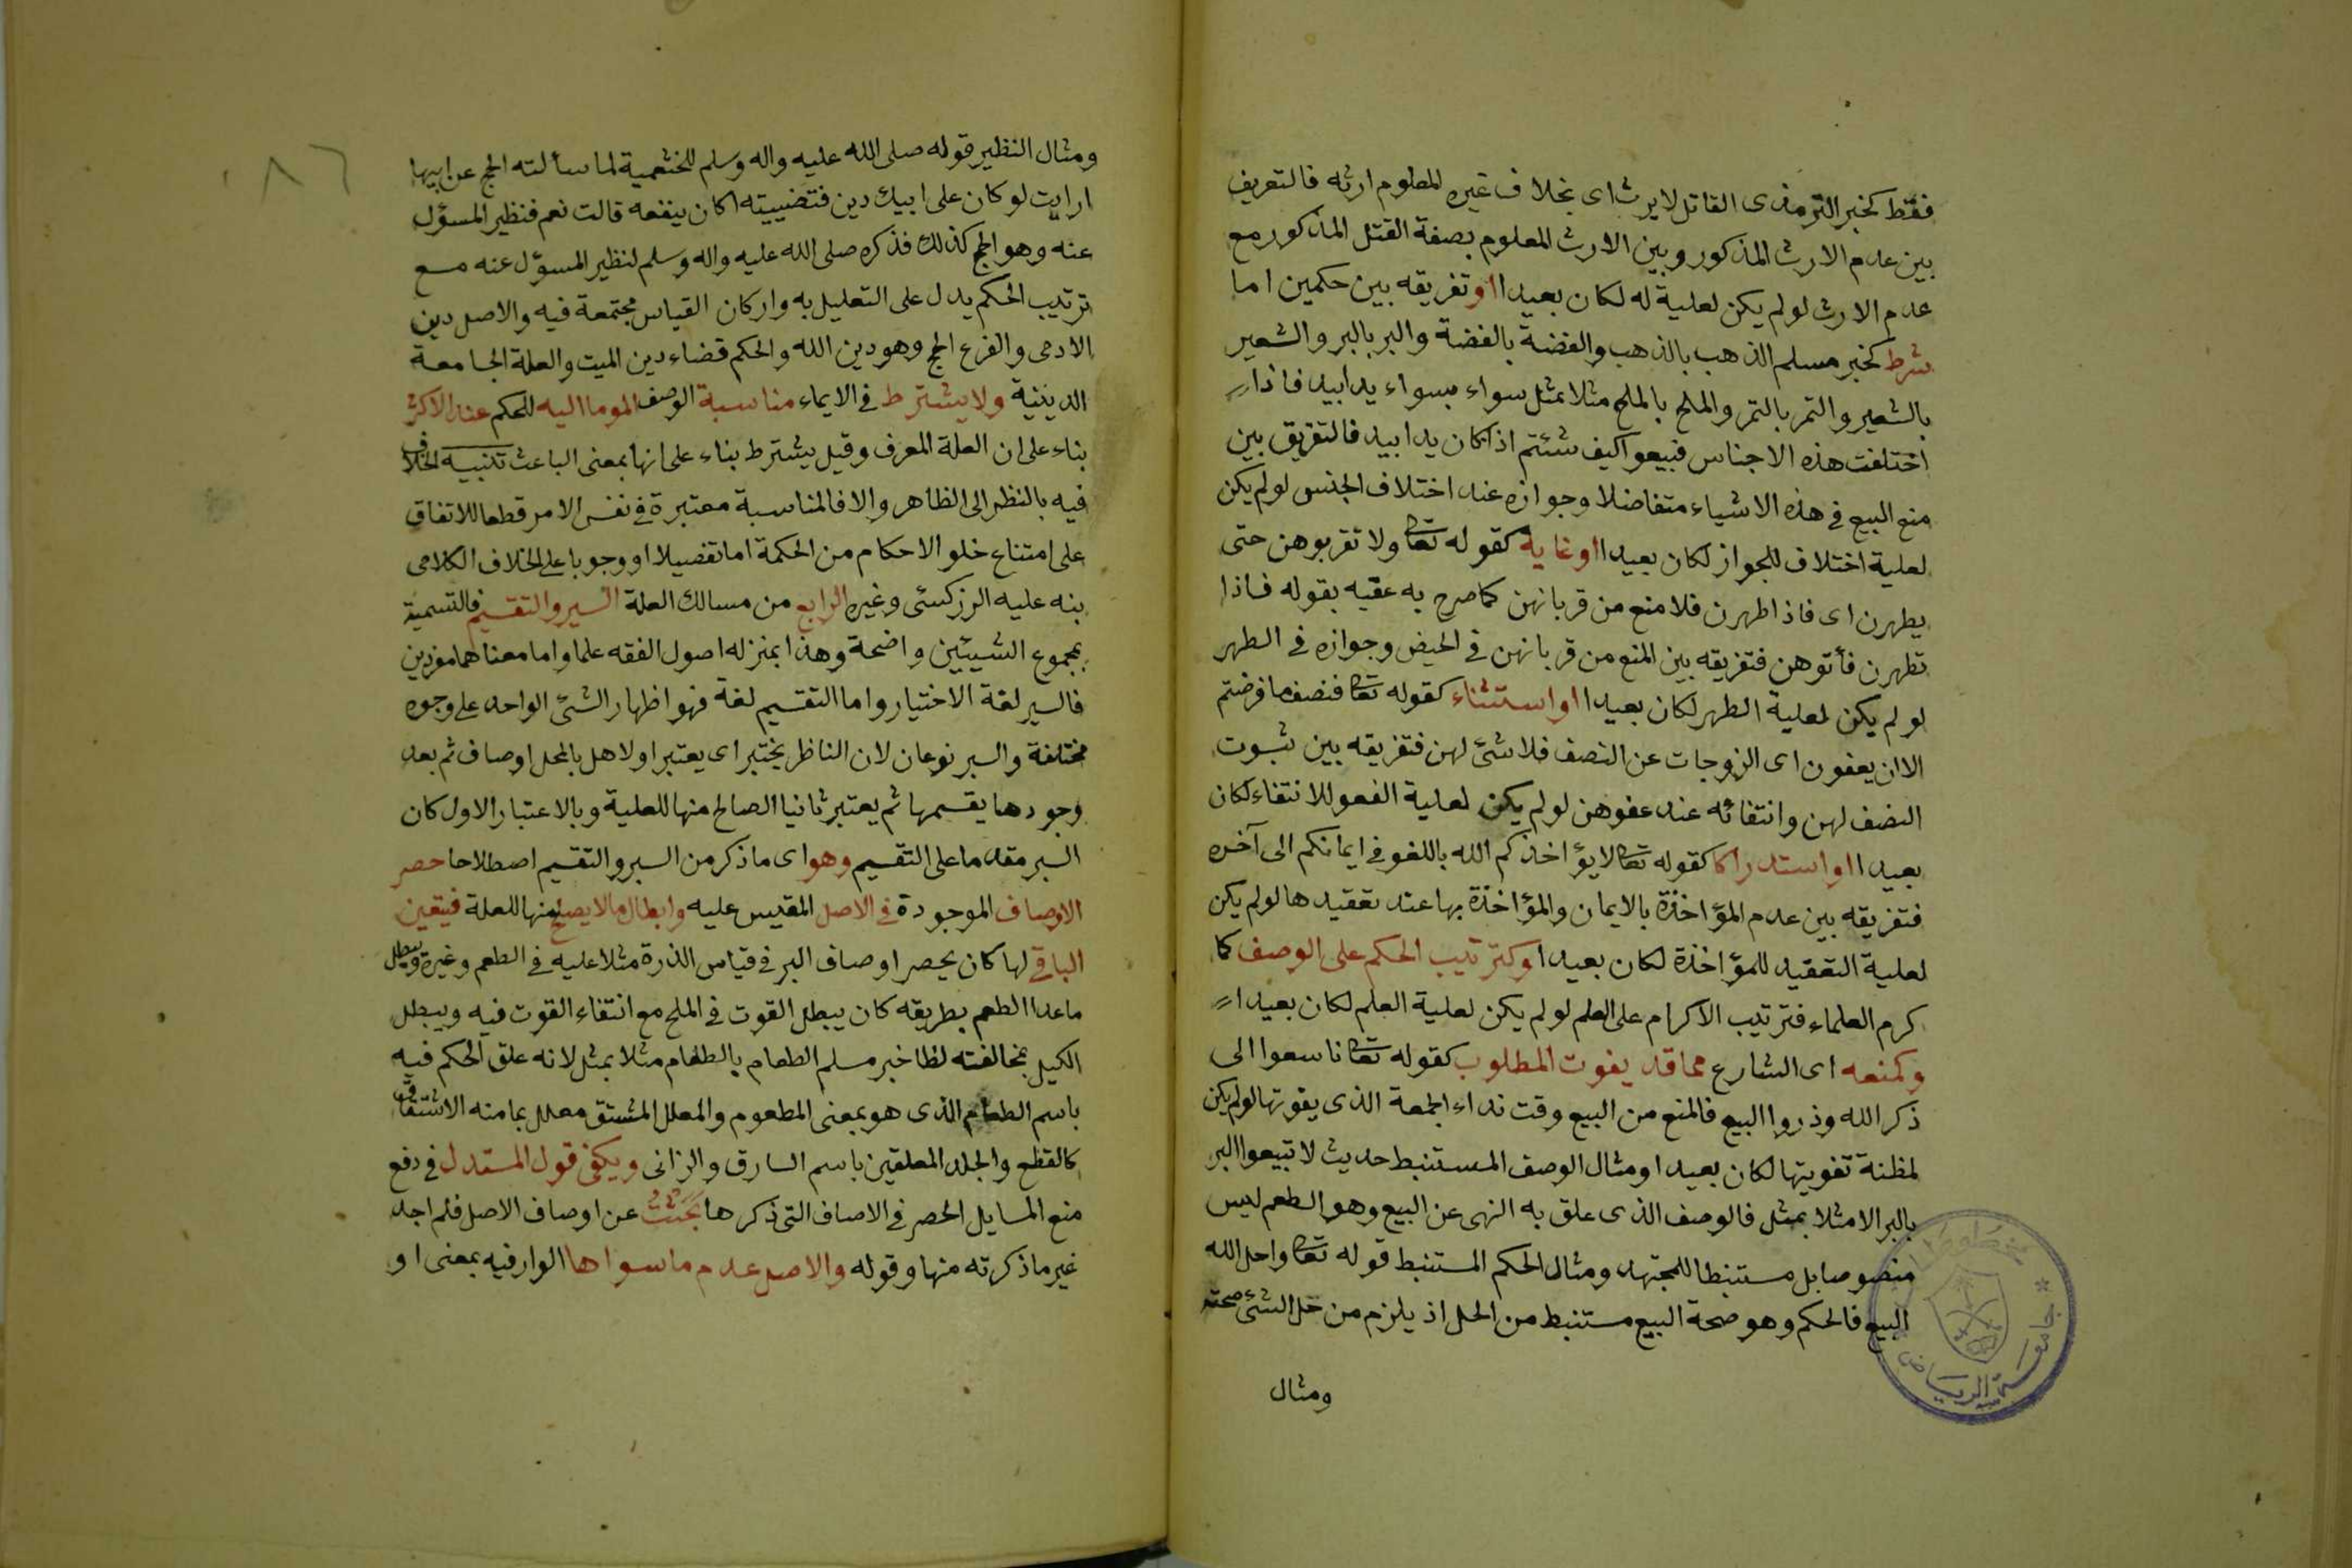 فقط كخبر الترمذى القاتل لايرث اى بخلاف غيره المعلوم ارثه فالتعريف
بين عدم الارث المذكور وبين الارث المعلوم بصفة القتل المذكور مع
عدم الارث لو لم يكن لعلية له لكان بعيدا او تفريقه بين حكمين اما
شرط كخبر مسلم الذهب بالذهب والفضة بالفضة والبر بالبر والشعير
بالشعير والتمر بالتمر والملح بالملح مثلا بمثل سواء بسواء يدا بيد فاذا
اختلفت هذه الاجناس فبيعوا كيف شئتم اذا كان يدا بيد فالتفريق بين
منع البيع في هذه الاشياء متفاضلا وجوازه عند اختلاف الجنس لو لم يكن
لعلية اختلاف للجواز لكان بعيدا او غاية كقوله تعا ولا تقربوهن حتى
يطهرن اى فاذا طهرن فلا منع من قربانهن كما صرح به عقبه بقوله فاذا
تطهرن فأتوهن فتفريقه بين المنع من قربانهن في الحيض وجوازه في الطهر
لو لم يكن لعلية الطهر لكان بعيدا او استثناء كقوله تعا فنصف ما فرضتم
الا ان يعفون اى الزوجات عن النصف فلا شئ لهن فتفريقه بين ثبوت
النصف لهن وانتفائه عند عفوهن لو لم يكن لعلية العفو للانتفاء لكان
بعيدا او استدراكا كقوله تعا لا يؤاخذكم الله باللغو في ايمانكم الى آخره
فتفريقه بين عدم المؤاخذة بالايمان والمؤاخذة بها عند تعقيدها لو لم يكن
لعلية التعقيد للمؤاخذة لكان بعيدا وكترتيب الحكم على الوصف كما
كرم العلماء فترتيب الاكرام على العلم لو لم يكن لعلية العلم لكان بعيدا
وكمنعه اى الشارع مما قد يفوت المطلوب كقوله تعا فاسعوا الى
ذكر الله وذروا البيع فالمنع من البيع وقت نداء الجمعة الذى يفوتها لو لم يكن
لمظنة تفويتها لكان بعيدا ومثال الوصف المستنبط حديث لا تبيعوا البر
بالبر الا مثلا بمثل فالوصف الذى علق به النهى عن البيع وهو الطعم ليس
منصوصا بل مستنبطا للمجتهد ومثال الحكم المستنبط قوله تعا واحل الله
البيع فالحكم وهو صحة البيع مستنبط من الحل اذ يلزم من حل الشئ صحته
ومثال
جامعة الرياض
٨٦
ومثال النظير قوله صلى الله عليه واله وسلم للخثعمية لما سألته الحج عن ابيها
ارايت لو كان على ابيك دين فقضيته اكان ينفعه قالت نعم فنظير المسؤل
عنه وهو الحج كذلك فذكره صلى الله عليه واله وسلم لنظير المسؤل عنه مع
ترتيب الحكم يدل على التعليل به واركان القياس مجتمعة فيه والاصل دين
الادمى والفرع الحج وهو دين الله والحكم قضاء دين الميت والعلة الجامعة
الدينية ولا يشترط في الايماء مناسبة الوصف الموما اليه للحكم عند الاكثر
بناء على ان العلة المعرف وقيل يشترط بناء على انها بمعنى الباعث تنبيه الخلاف
فيه بالنظر الى الظاهر والا فالمناسبة معتبرة في نفس الامر قطعا للاتفاق
على امتناع خلو الاحكام من الحكمة اما تفضيلا او وجوبا على الخلاف الكلامى
بنه عليه الزركشى وغيره الرابع من مسالك العلة السبر والتقسيم فالتسمية
بمجموع الشيئين واضحة وهذا بمنزله اصول الفقه علما واما معناهما مفردين
فالسبر لغة الاختبار واما التقسيم لغة فهو اظهار الشئ الواحد على وجوه
مختلفة والسبر نوعان لان الناظر يختبر اى يعتبر اولا هل بالمحل اوصاف ثم بعد
وجودها يقسمها ثم يعتبر ثانيا الصالح منها للعلية وبالاعتبار الاول كان
السبر مقدما على التقسيم وهو اى ما ذكر من السبر والتقيم اصطلاحا حصر
الاوصاف الموجودة في الاصل المقيس عليه وابطال ما لا يصلح منها للعلة فيتعين
الباقي لها كان يحصر اوصاف البر في قياس الذرة مثلا عليه في الطعم وغيره ويبطل
ما عدا الطعم بطريقه كان يبطل القوت في الملح مع انتفاء القوت فيه ويبطل
الكيل بمخالفته لظا خبر مسلم الطعام بالطعام مثلا بمثل لانه علق الحكم فيه
باسم الطعام الذى هو بمعنى المطعوم والمعلل المشتق معلل بما منه الاشتقاق
كالقطع والجلد المعلقين باسم السارق والزانى ويكفى قول المستدل في دفع
منع المسايل الحصر في الاصاف التى ذكرها بحثت عن اوصاف الاصل فلم اجد
غير ما ذكرته منها وقوله والاصل عدم ما سواها الوار فيه بمعنى او